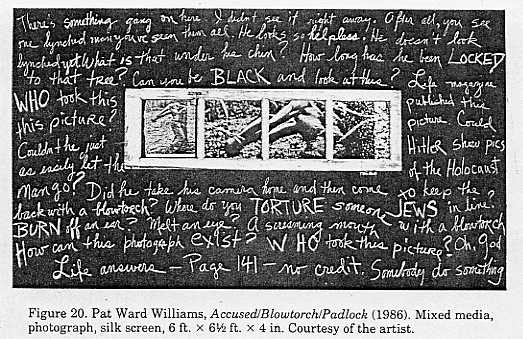 There's something going on here. I didn't see it right away. After all, you see
one lynched man you've seen them all. He looks so helpless. He doesn't look
lynched yet. What is that under his chin? How long has he been LOCKED
to that tree? Can you be BLACK and look at this? Life magazine
WHO took this published this
this picture? picture. Could
Couldn't he just Hitler show pics
as easily let the of the Holocaust
man go? Did he take his camera home and then come to keep the
back with a blowtorch? Where do you TORTURE someone JEWS in line?
BURN off an ear? Melt an eye? A screaming mouth with a blowtorch
How can this photograph EXIST? WHO took this picture? Oh, God
Life answers – Page 141 – no credit. Somebody do something
Figure 20. Pat Ward Williams, Accused/Blowtorch/Padlock (1986). Mixed media,
photograph, silk screen, 6 ft. × 6½ ft. × 4 in. Courtesy of the artist.